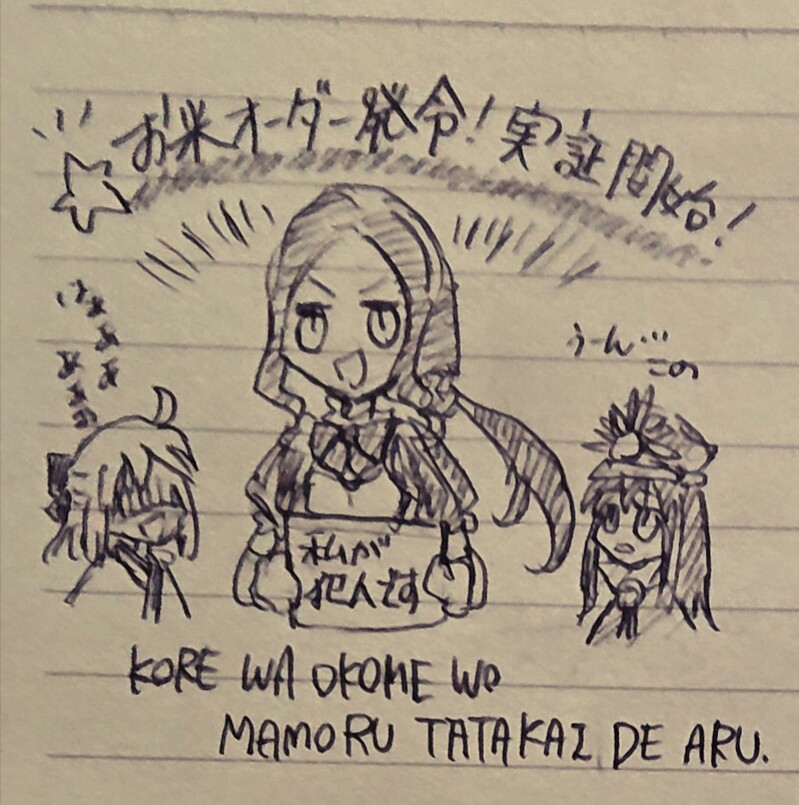 お米オーダー発令!実証開始!
うーん…
この
私が
犯人です
KORE WA OKOME WO
MAMORU TATAKAI DE ARU.